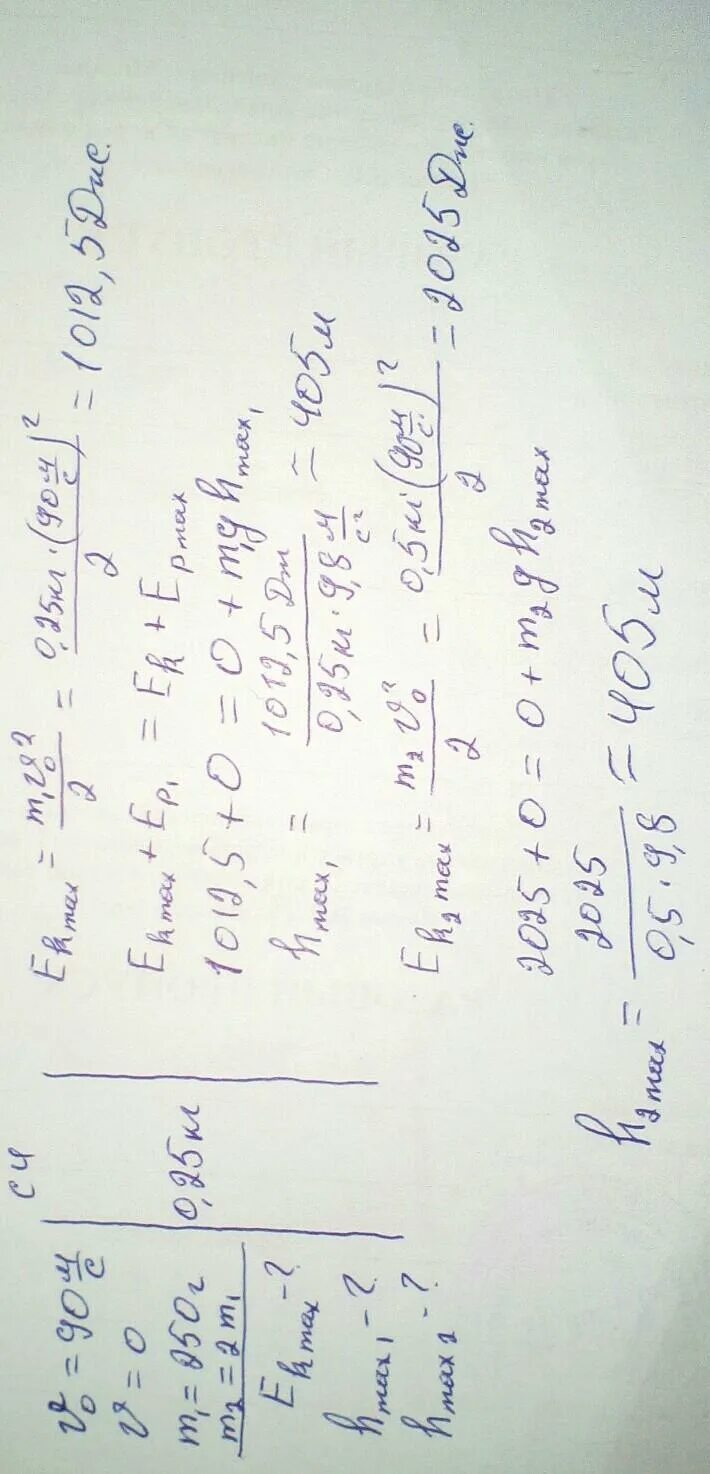 v₀ = 90 м/с
v = 0
m₁ = 250г
m₂ = 2m₁
Eₖ max - ?
h max₁ - ?
h max₂ - ?
СИ
0,25кг
Eₖ max = m₁v₀²/2 = 0,25кг·(90 м/с)²/2 = 1012,5Дж.
Eₖ max + Eₚ₁ = Eₖ + Eₚ max
1012,5 + 0 = 0 + m₁gh max₁
h max₁ = 1012,5 Дж/0,25кг·9,8 м/с² = 405м
Eₖ₂ max = m₂v₀²/2 = 0,5кг·(90 м/с)²/2 = 2025Дж.
2025 + 0 = 0 + m₂gh₂ max
h₂ max = 2025/0,5·9,8 = 405м